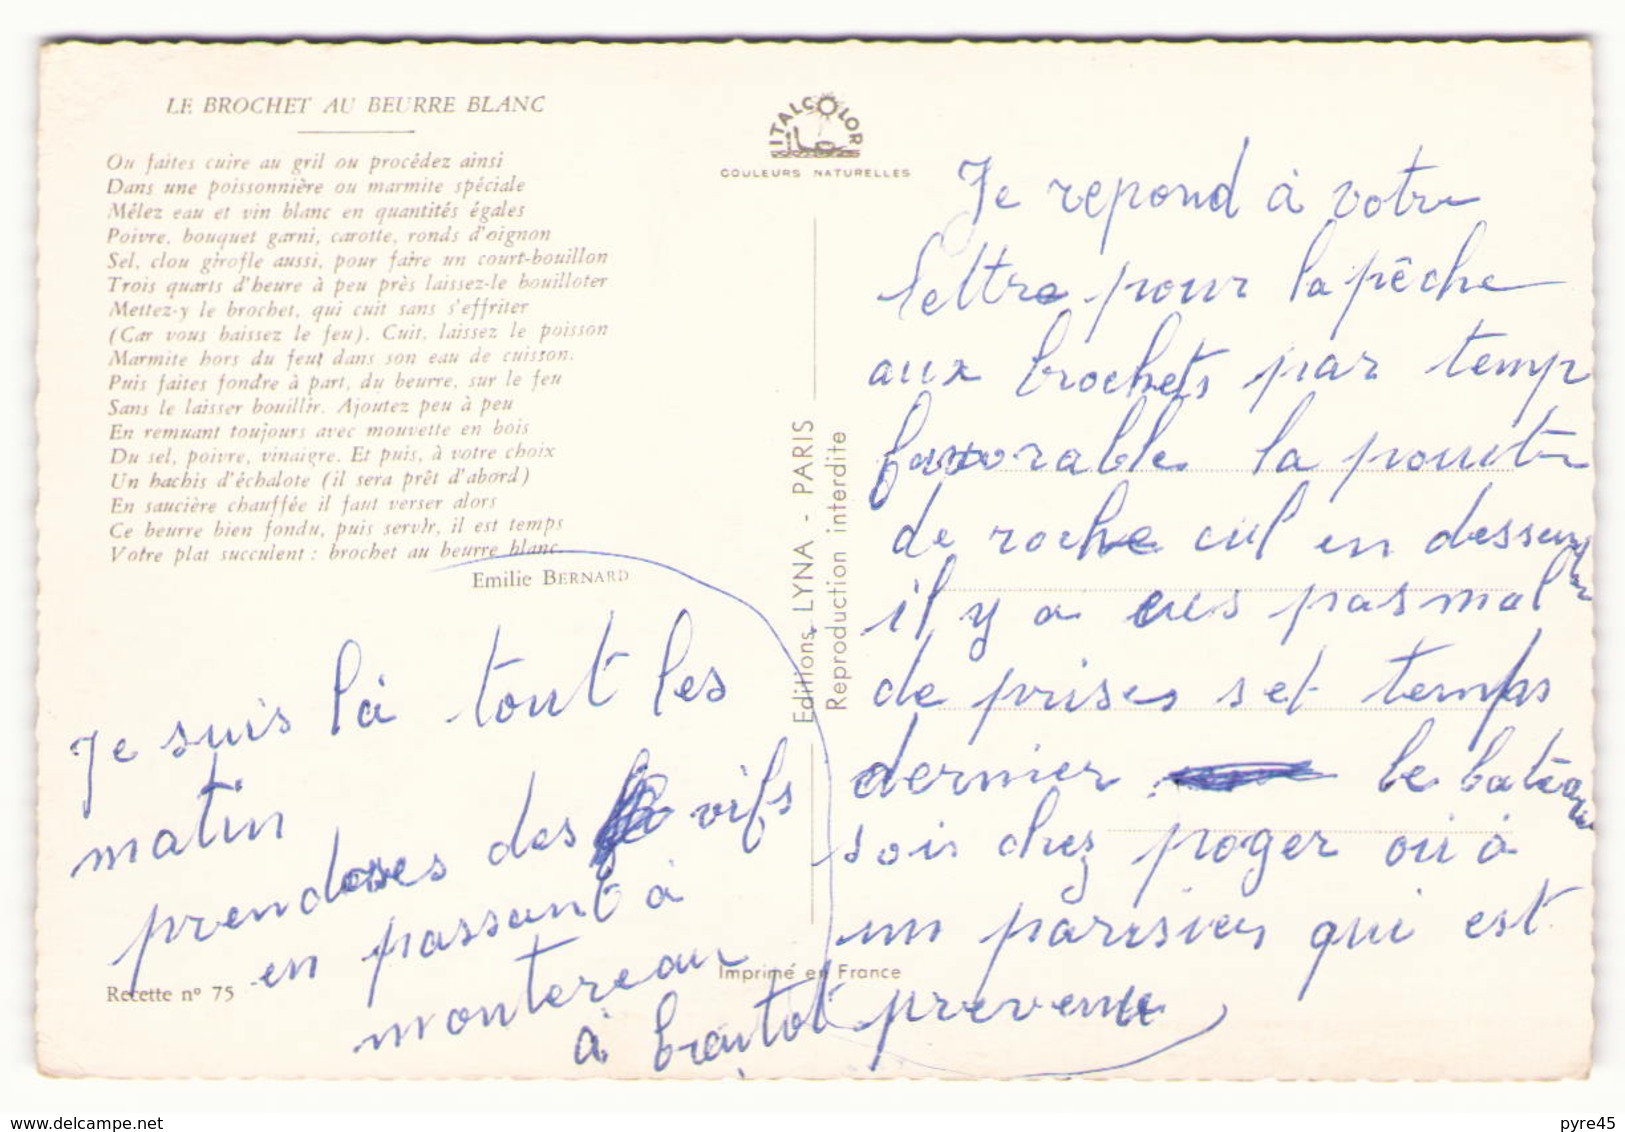 LE BROCHET AU BEURRE BLANC
Ou faites cuire au gril ou procédez ainsi
Dans une poissonnière ou marmite spéciale
Mêlez eau et vin blanc en quantités égales
Poivre, bouquet garni, carotte, ronds d'oignon
Sel, clou girofle aussi, pour faire un court-bouillon
Trois quarts d'heure à peu près laissez-le bouilloter
Mettez-y le brochet, qui cuit sans s'effriter
(Car vous baissez le feu). Cuit, laissez le poisson
Marmite hors du feu, dans son eau de cuisson.
Puis faites fondre à part, du beurre, sur le feu
Sans le laisser bouillir. Ajoutez peu à peu
En remuant toujours avec mouvette en bois
Du sel, poivre, vinaigre. Et puis, à votre choix
Un hachis d'échalote (il sera prêt d'abord)
En saucière chauffée il faut verser alors
Ce beurre bien fondu, puis servir, il est temps
Votre plat succulent : brochet au beurre blanc.
Emilie BERNARD
Recette n° 75
ITALCOLOR
COULEURS NATURELLES
Editions LYNA - PARIS
Reproduction interdite
Imprimé en France
Je repond à votre
lettre pour la pêche
aux brochets par temp
favorable la pointe
de roche cul en dessous
il y a eus pas mal
de prises set temps
dernier le bateau
sois chez poger ou à
un parisien qui est
prevenue
Je suis là tout les
matin
prendoses des vifs
en passant à
montereau
à biantot
delcampe.net
pyre45